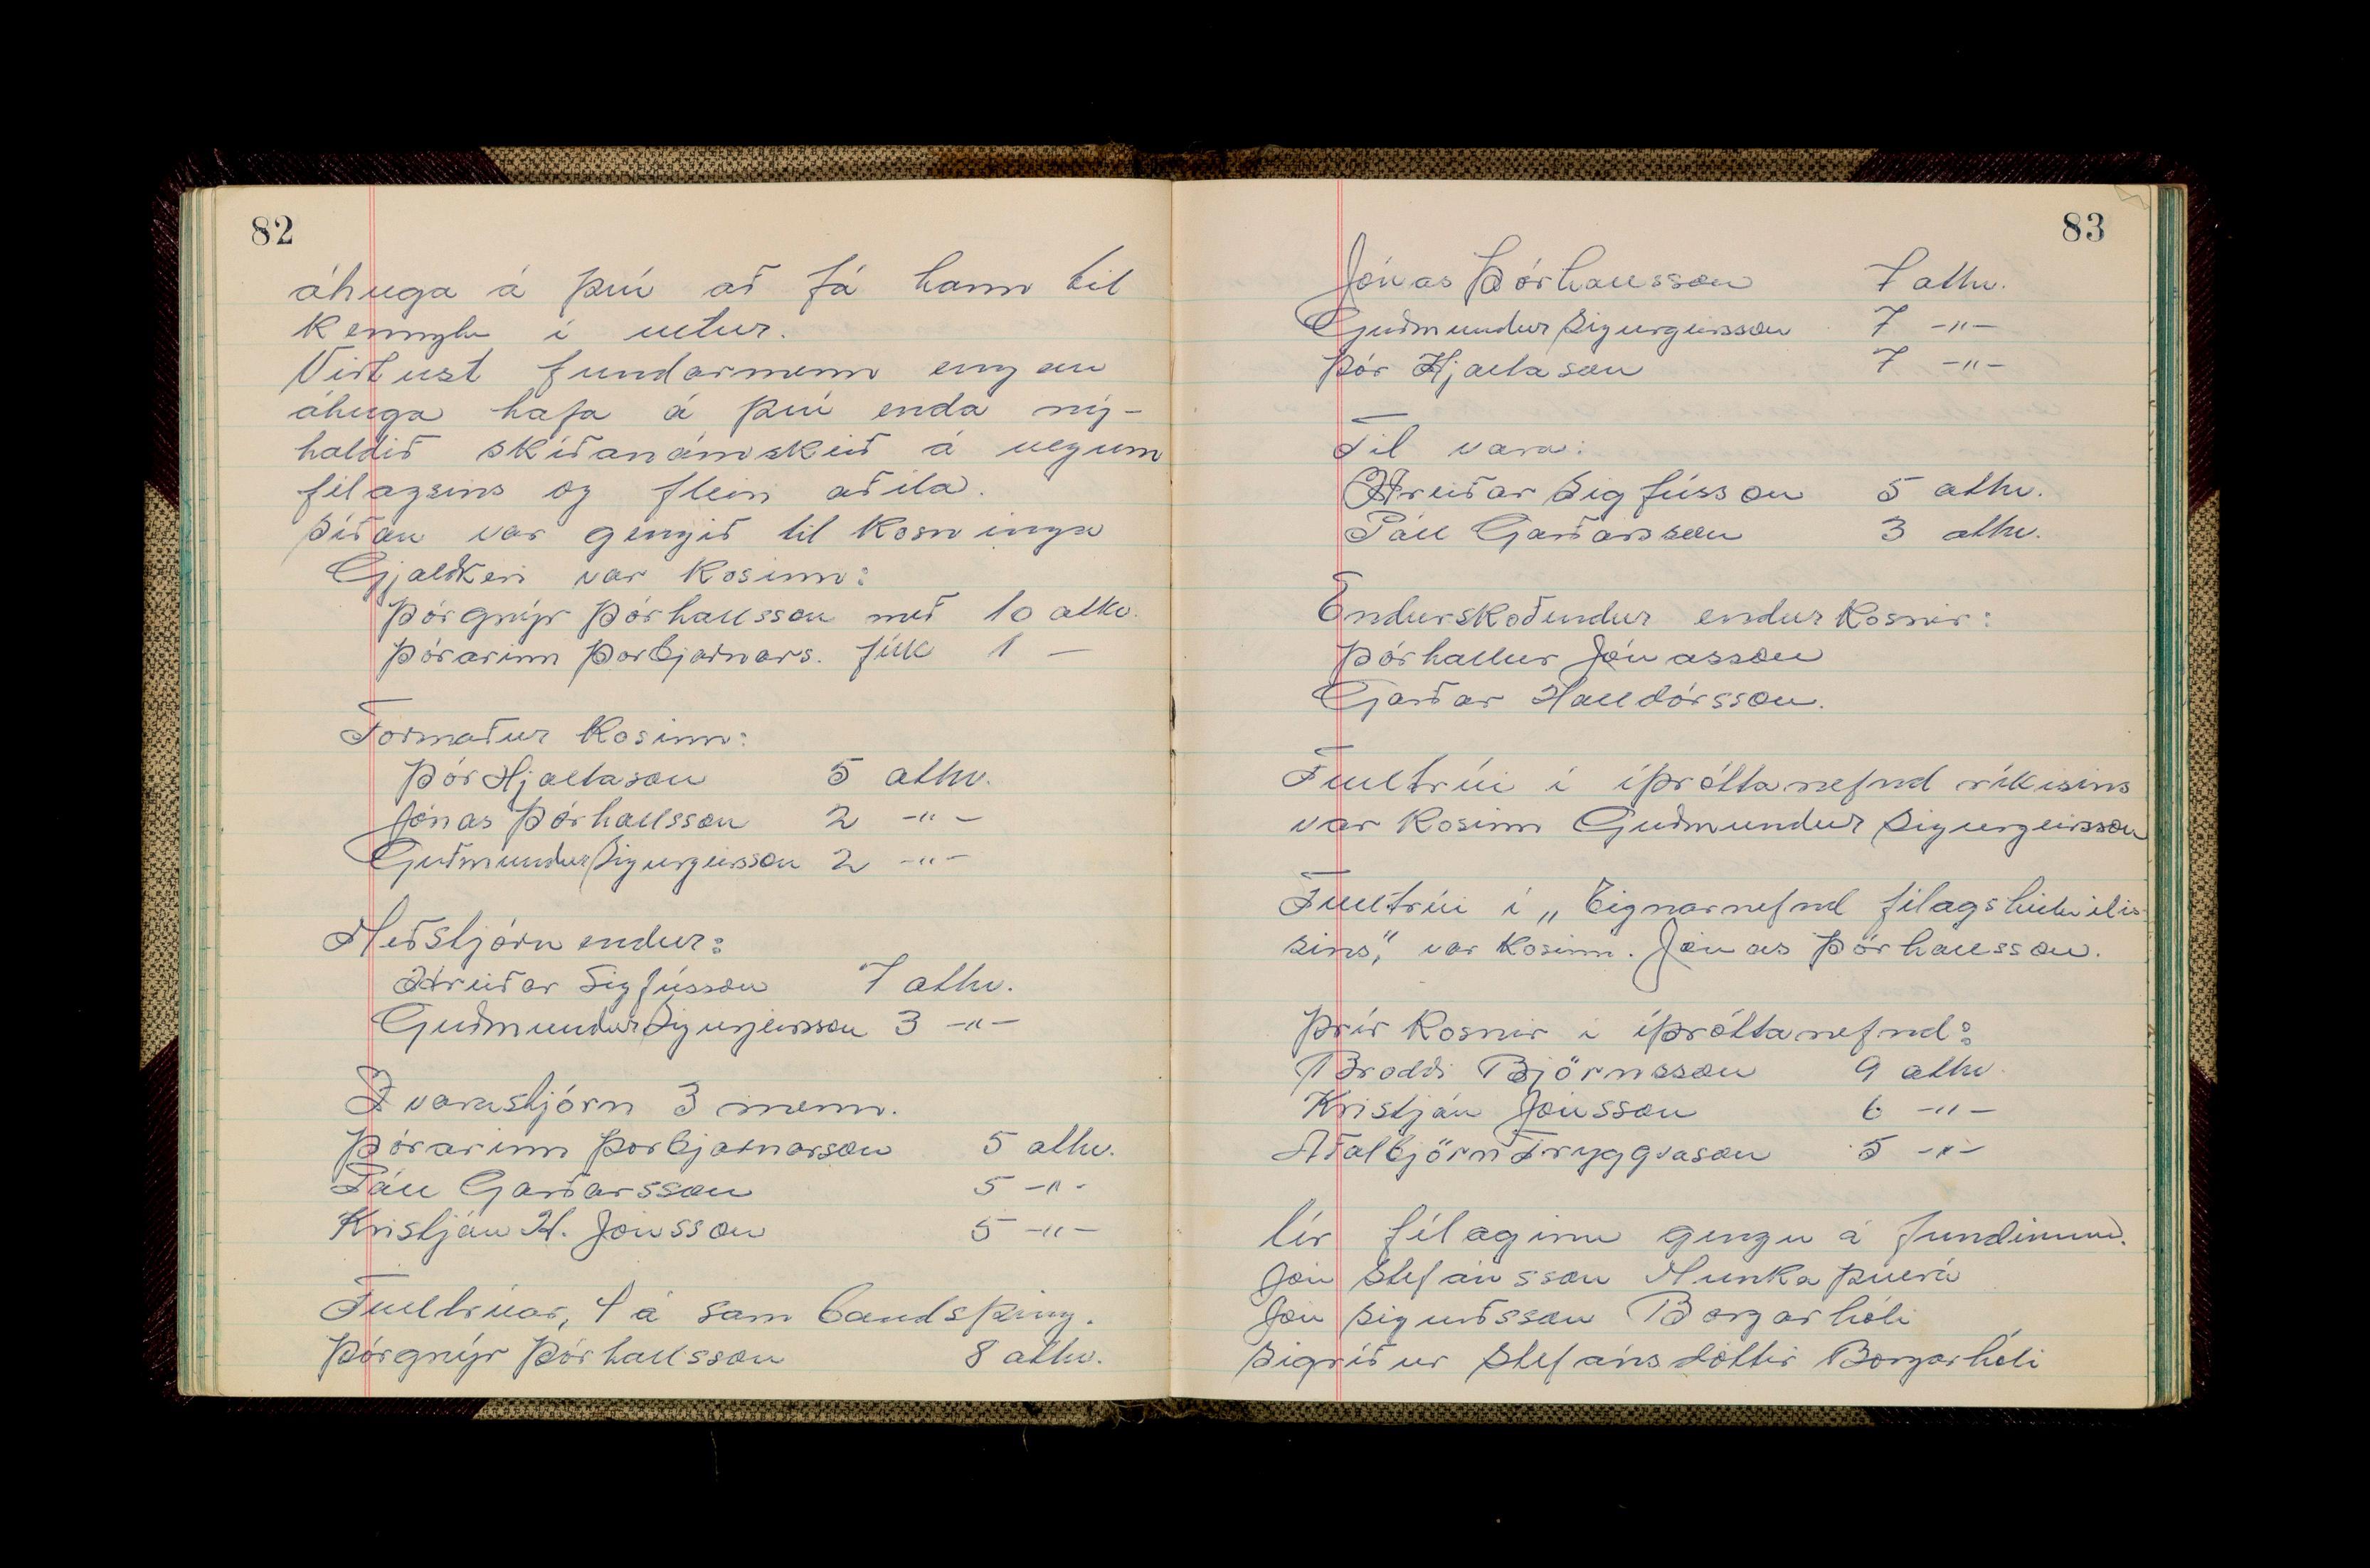 82
áhuga á því að fá hann til
kennslu í vetur.
Virtust fundarmenn engan
áhuga hafa á því enda ný-
haldið skíðanámskeið á vegum
félagsins og fleiri aðila.
Síðan var gengið til kosninga
Gjaldkeri var kosinn:
Þórgnýr Þórhallsson með 10 atkv.
Þórarinn Þorbjarnars. fékk 1 —
Formaður kosinn:
Þór Hjaltason 5 atkv.
Jónas Þórhallsson 2 -"-
Guðmundur Sigurgeirsson 2 -"-
Meðstjórnendur:
Hreiðar Sigfússon 7 atkv.
Guðmundur Sigurgeirsson 3 -"-
Í varastjórn 3 menn.
Þórarinn Þorbjarnarson 5 atkv.
Páll Garðarsson 5 -"-
Kristján H. Jónsson 5 -"-
Fulltrúar, 4 á sambandsþing.
Þórgnýr Þórhallsson 8 atkv.
83
Jónas Þórhallsson 7 atkv.
Guðmundur Sigurgeirsson 7 -"-
Þór Hjaltason 7 -"-
Til vara:
Hreiðar Sigfússon 5 atkv.
Páll Garðarsson 3 atkv.
Endurskoðendur endurkosnir:
Þórhallur Jónasson
Garðar Halldórsson.
Fulltrúi í íþróttanefnd ríkisins
var kosinn Guðmundur Sigurgeirsson
Fulltrúi í „Eignarnefnd félagsheimilis-
sins," var kosinn. Jónas Þórhallsson.
Þrír kosnir í íþróttanefnd:
Broddi Björnsson 9 atkv.
Kristján Jónsson 6 -"-
Aðalbjörn Tryggvason 5 -"-
Úr félaginu gengu á fundinum.
Jón Stefánsson Munkaþverá
Jón Sigurðsson Borgarhóli
Sigríður Stefánsdóttir Borgarhóli